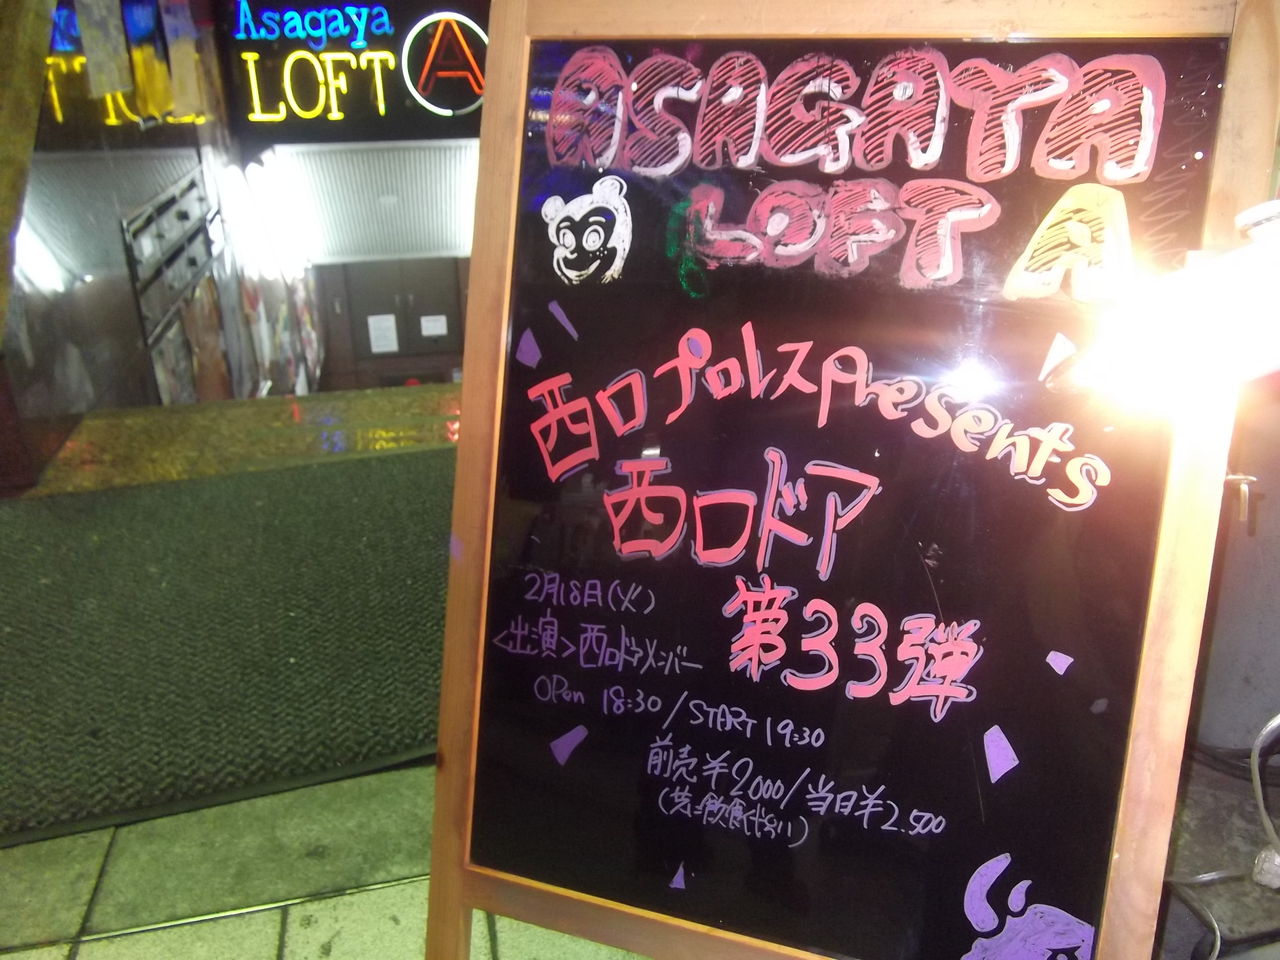 Asagaya
LOFT A
ASAGAYA
LOFT A
西口プロレスpresents
西口ドア
第33弾
2月18日(火)
<出演>西口ドアメンバー
OPEN 18:30 / START 19:30
前売¥2000/当日¥2.500
(共に飲食代別)